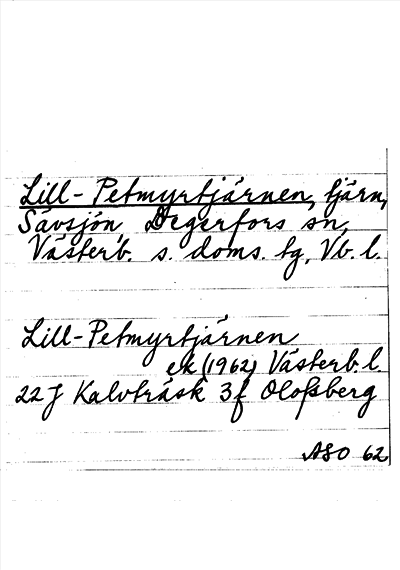 Lill-Petmyrtjärnen, tjärn,
Sävsjön, Degerfors sn,
Västerb. s. doms. tg, Vb. l.
Lill-Petmyrtjärnen
ek (1962) Västerb. l.
22 J Kalvträsk 3f Olofsberg
ASO 62